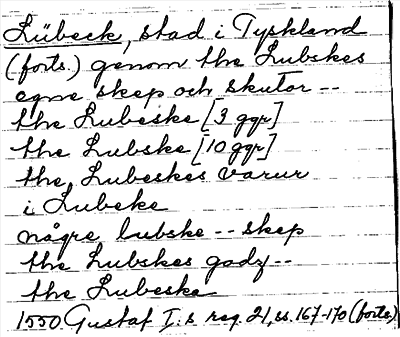 Lübeck, stad i Tyskland
(forts.) genom the Lubskes
egne skep och skutor --
the Lubeske [3 ggr]
the Lubske [10 ggr]
the Lubeskes varur
i Lubeke
någre lubske -- skep
the Lubskes godz --
the Lubeske
1550 Gustaf I:s reg. 21, ss. 167-170 (forts.)